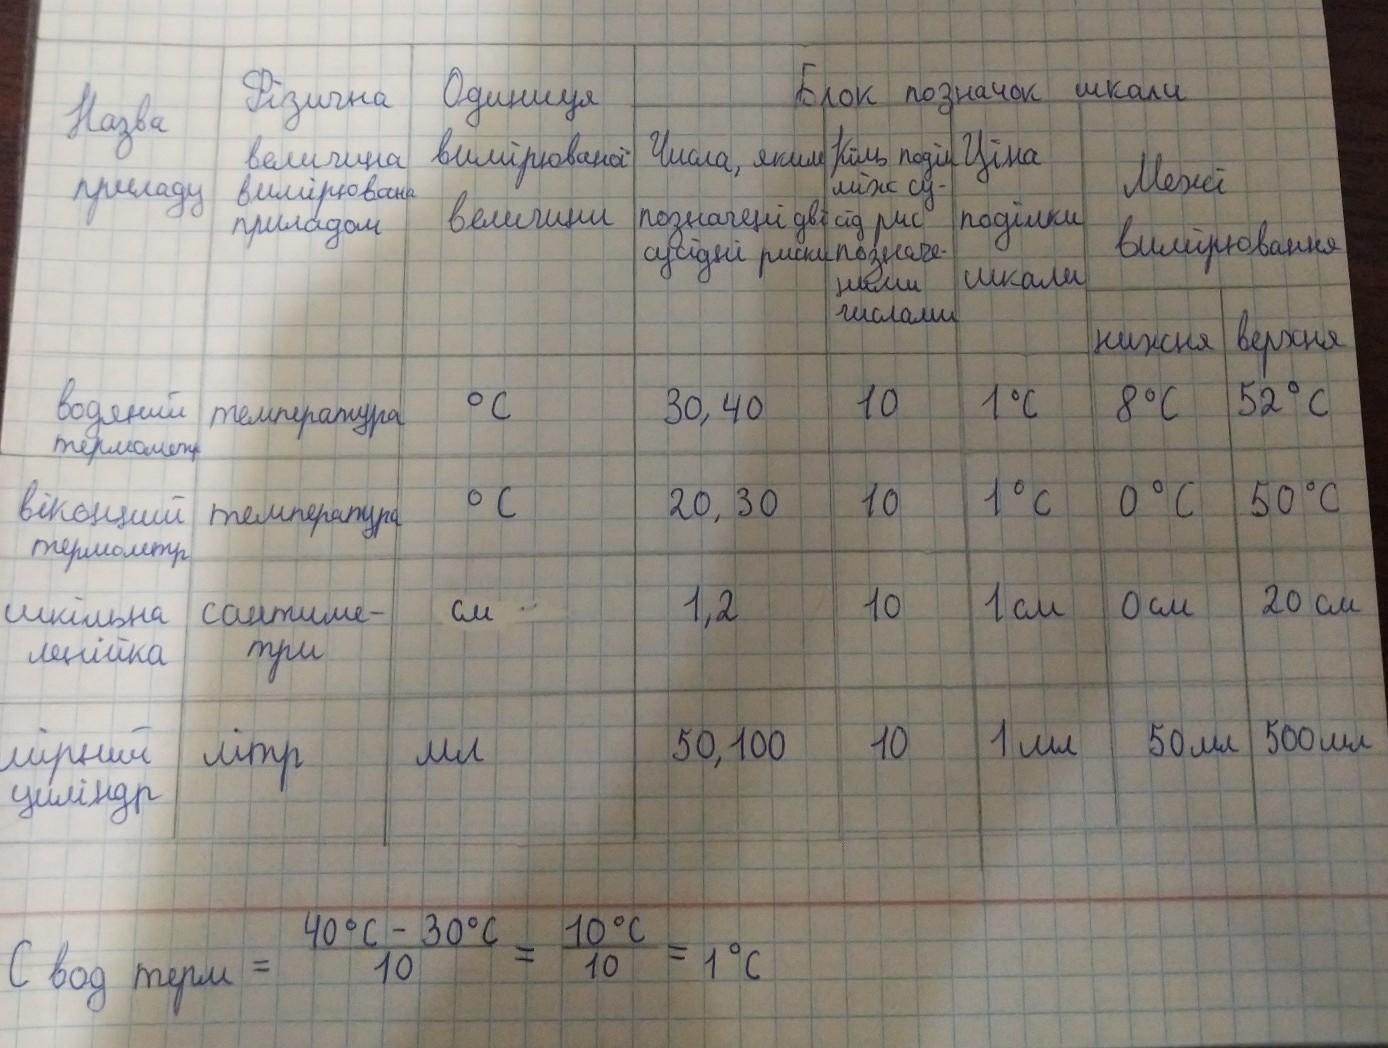 Назва
приладу
Фізична
величина
вимірювана
приладом
Одиниця
вимірюваної
величини
Блок позначок шкали
Числа, яким
позначені дві
сусідні риски
Кіль поділ
між су-
сід рис
позначе-
ними
числами
Ціна
поділки
шкали
Межі
вимірювання
нижня верхня
водяний температура °C 30, 40 10 1°C 8°C 52°C
термометр
віконний температура °C 20, 30 10 1°C 0°C 50°C
термометр
шкільна сантиме- см 1, 2 10 1 см 0 см 20 см
лінійка три
мірний літр мл 50, 100 10 1 мл 50 мл 500 мл
циліндр
C вод терм = 40°C - 30°C / 10 = 10°C / 10 = 1°C